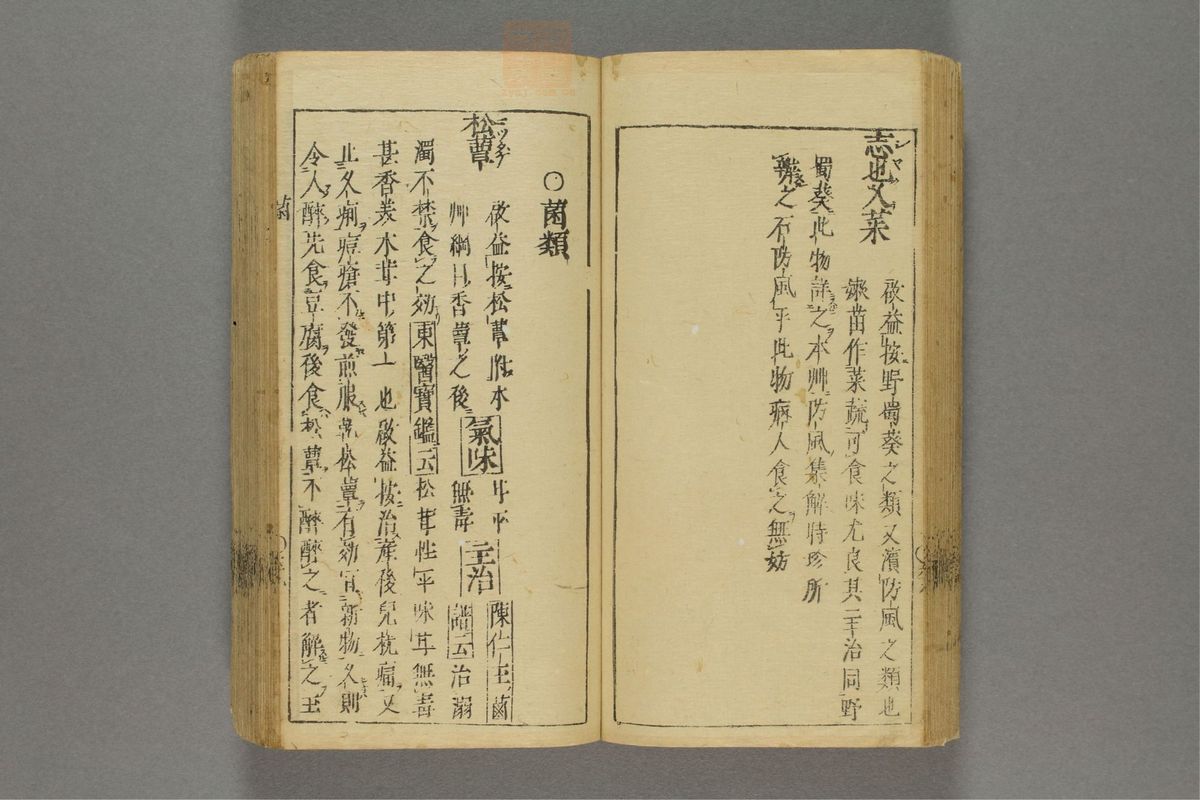 志也乂菜
啟益按野蜀葵之類又濱防風之類也
嫩苗作菜蔬可食味尤良其主治同野
蜀葵此物詳之本艸防風集解時珍所
辯之石防風乎此物病人食之無妨
○菌類
松蕈
啟益按松蕈附本
艸綱目香蕈之後
氣味
甘平
無毒
主治
陳仁玉菌
譜云治溺
濁不禁食之効東醫寶鑑云松茸性平味甘無毒
甚香美木茸中第一也啟益按治產後兒枕痛又
止久痢痘瘡不發煎服乾松蕈有効宜新物久則
令人醉先食豆腐後食松蕈不醉醉之者解之王
菌